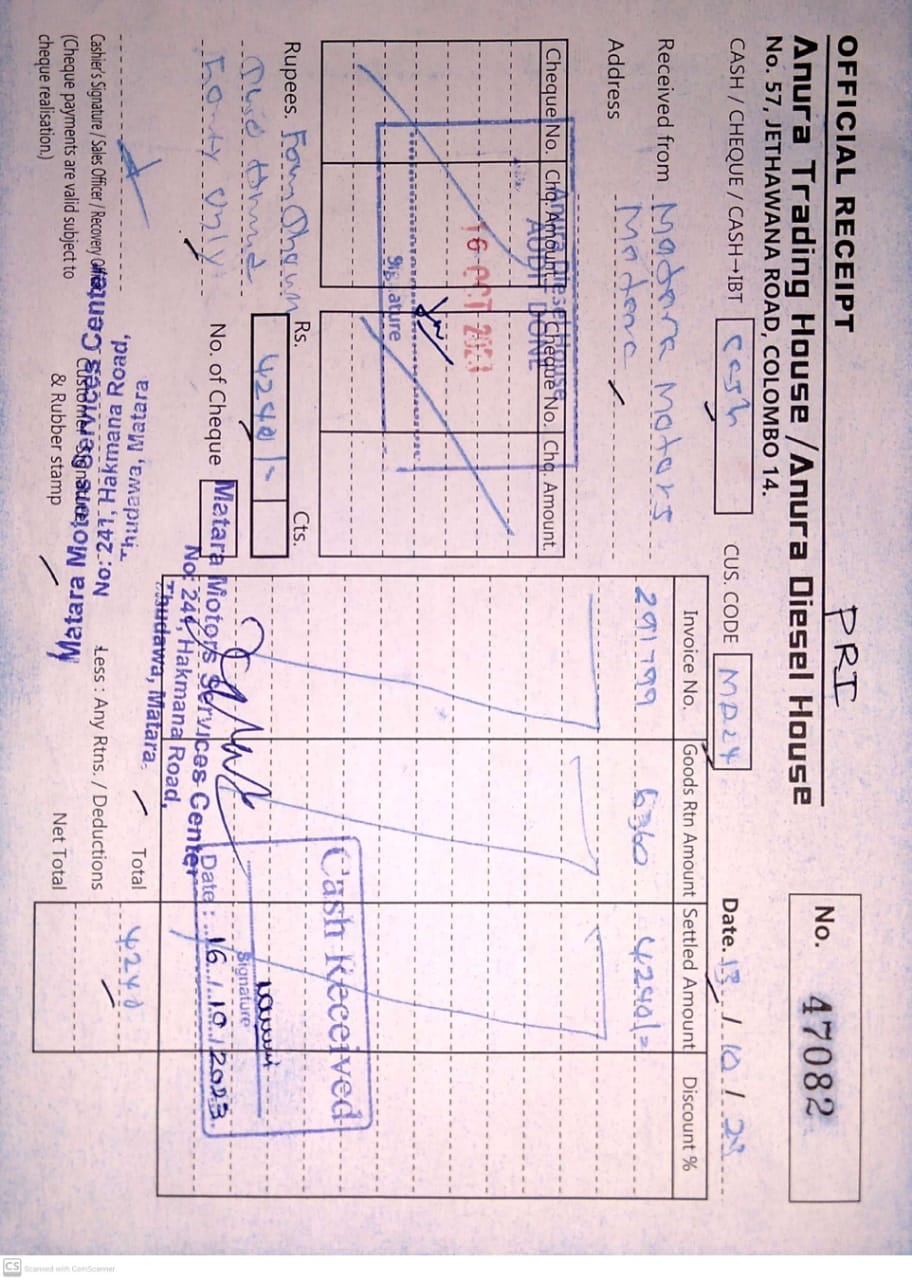 OFFICIAL RECEIPT
PRI
Anura Trading House / Anura Diesel House
No. 57, JETHAWANA ROAD, COLOMBO 14.
No. 47082
CASH / CHEQUE / CASH→IBT cash
CUS. CODE MP24
Date. 13 / 10 / 23
Received from Matara Motors
Address Matara
Invoice No. Goods Rtn Amount Settled Amount Discount %
291799 6360 4240/=
Cheque No. Chq. Amount Cheque No. Chq. Amount
Anura Diesel House
AUDIT DONE
16 OCT 2023
Signature
Cash Received
Signature
Date : 16 / 10 / 2023.
Rupees. Four Thousand
Two Hundred
Forty only
Rs. Cts.
4240/=
No. of Cheque
Matara Motors Services Center
No: 241, Hakmana Road,
Thudawa, Matara.
Total 4240
Less : Any Rtns. / Deductions
Net Total
Cashier's Signature / Sales Officer / Recovery Officer
(Cheque payments are valid subject to
cheque realisation)
Customer Signature
& Rubber stamp
Matara Motors Services Center
No: 241, Hakmana Road,
Thudawa, Matara
CS Scanned with CamScanner